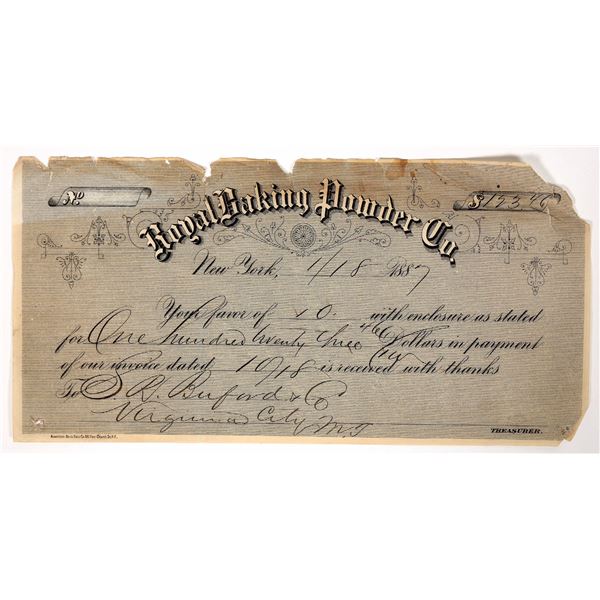 № $123 46
Royal Baking Powder Co.
New York, 1/18 1887
Your favor of 10 with enclosure as stated
for One hundred twenty three 46/100 Dollars in payment
of our invoice dated 10/18 is received with thanks
To S. R. Buford & Co
Virginia City M.T
TREASURER.
American Bank Note Co.